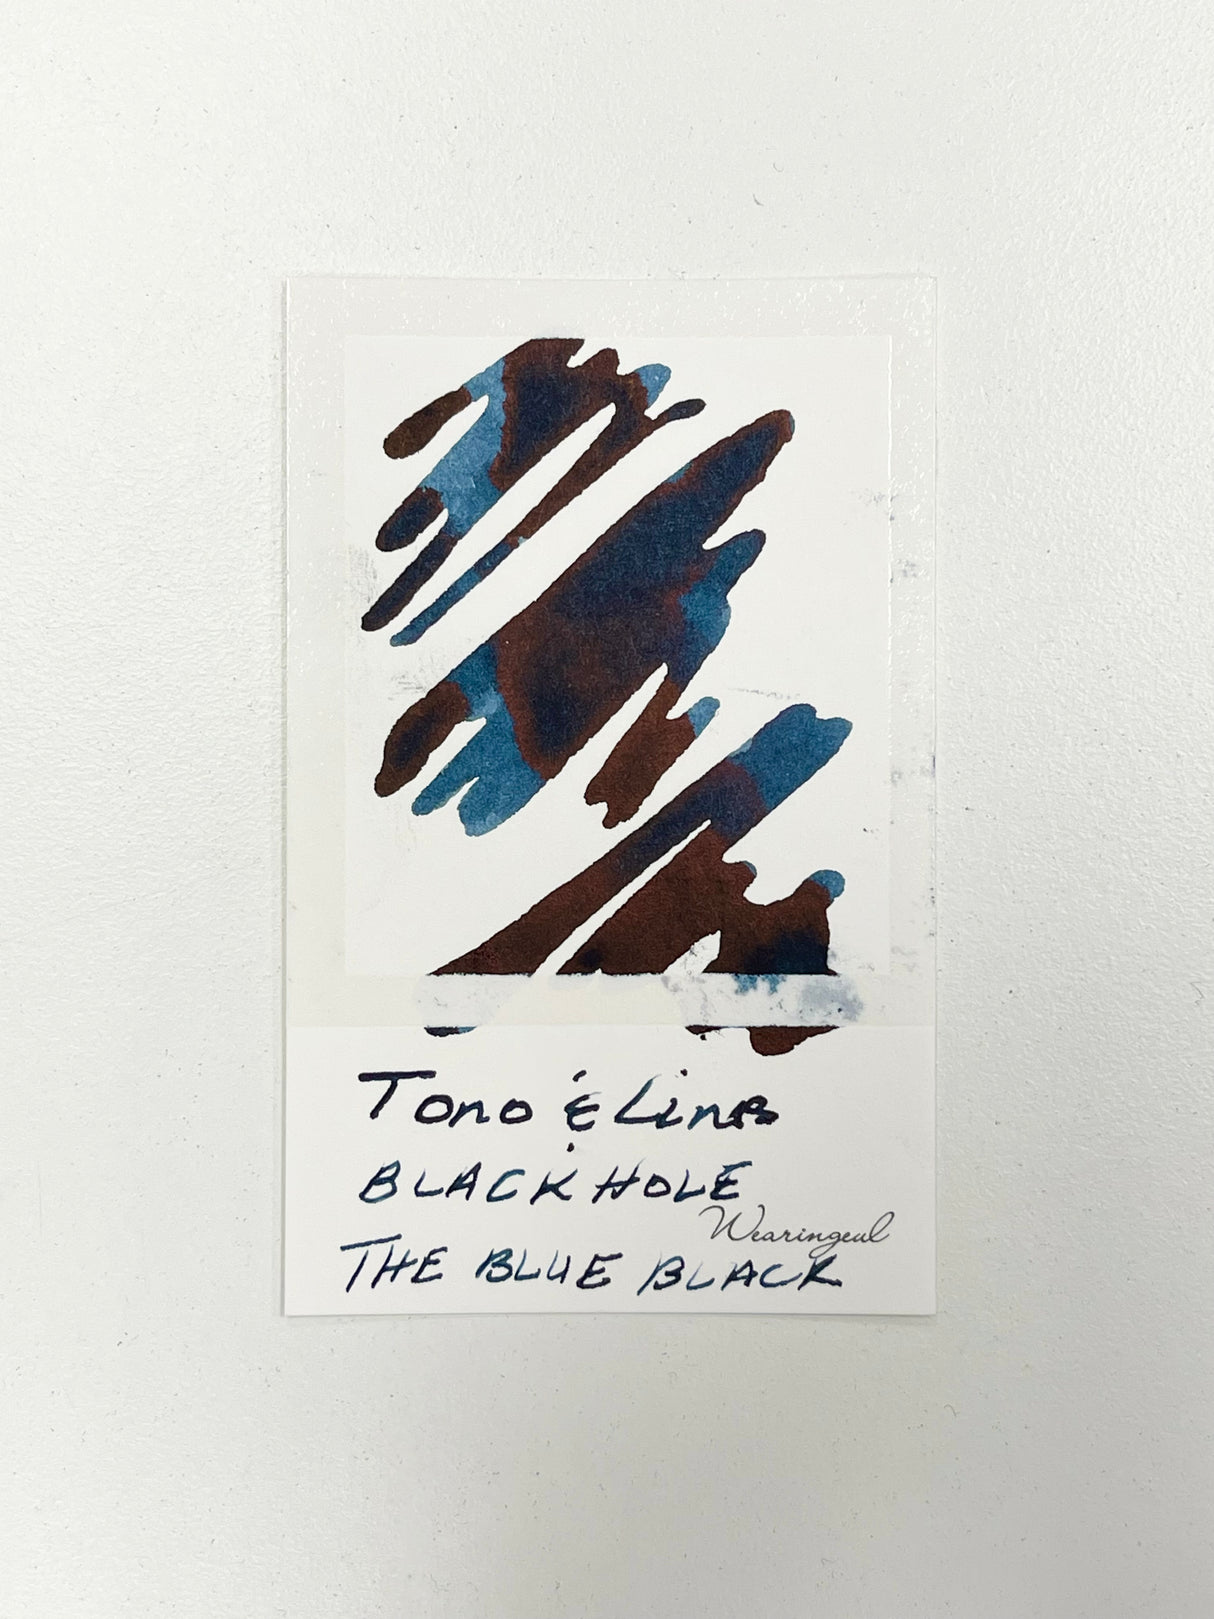 Tono & Lims
BLACK HOLE
Wearingeul
THE BLUE BLACK